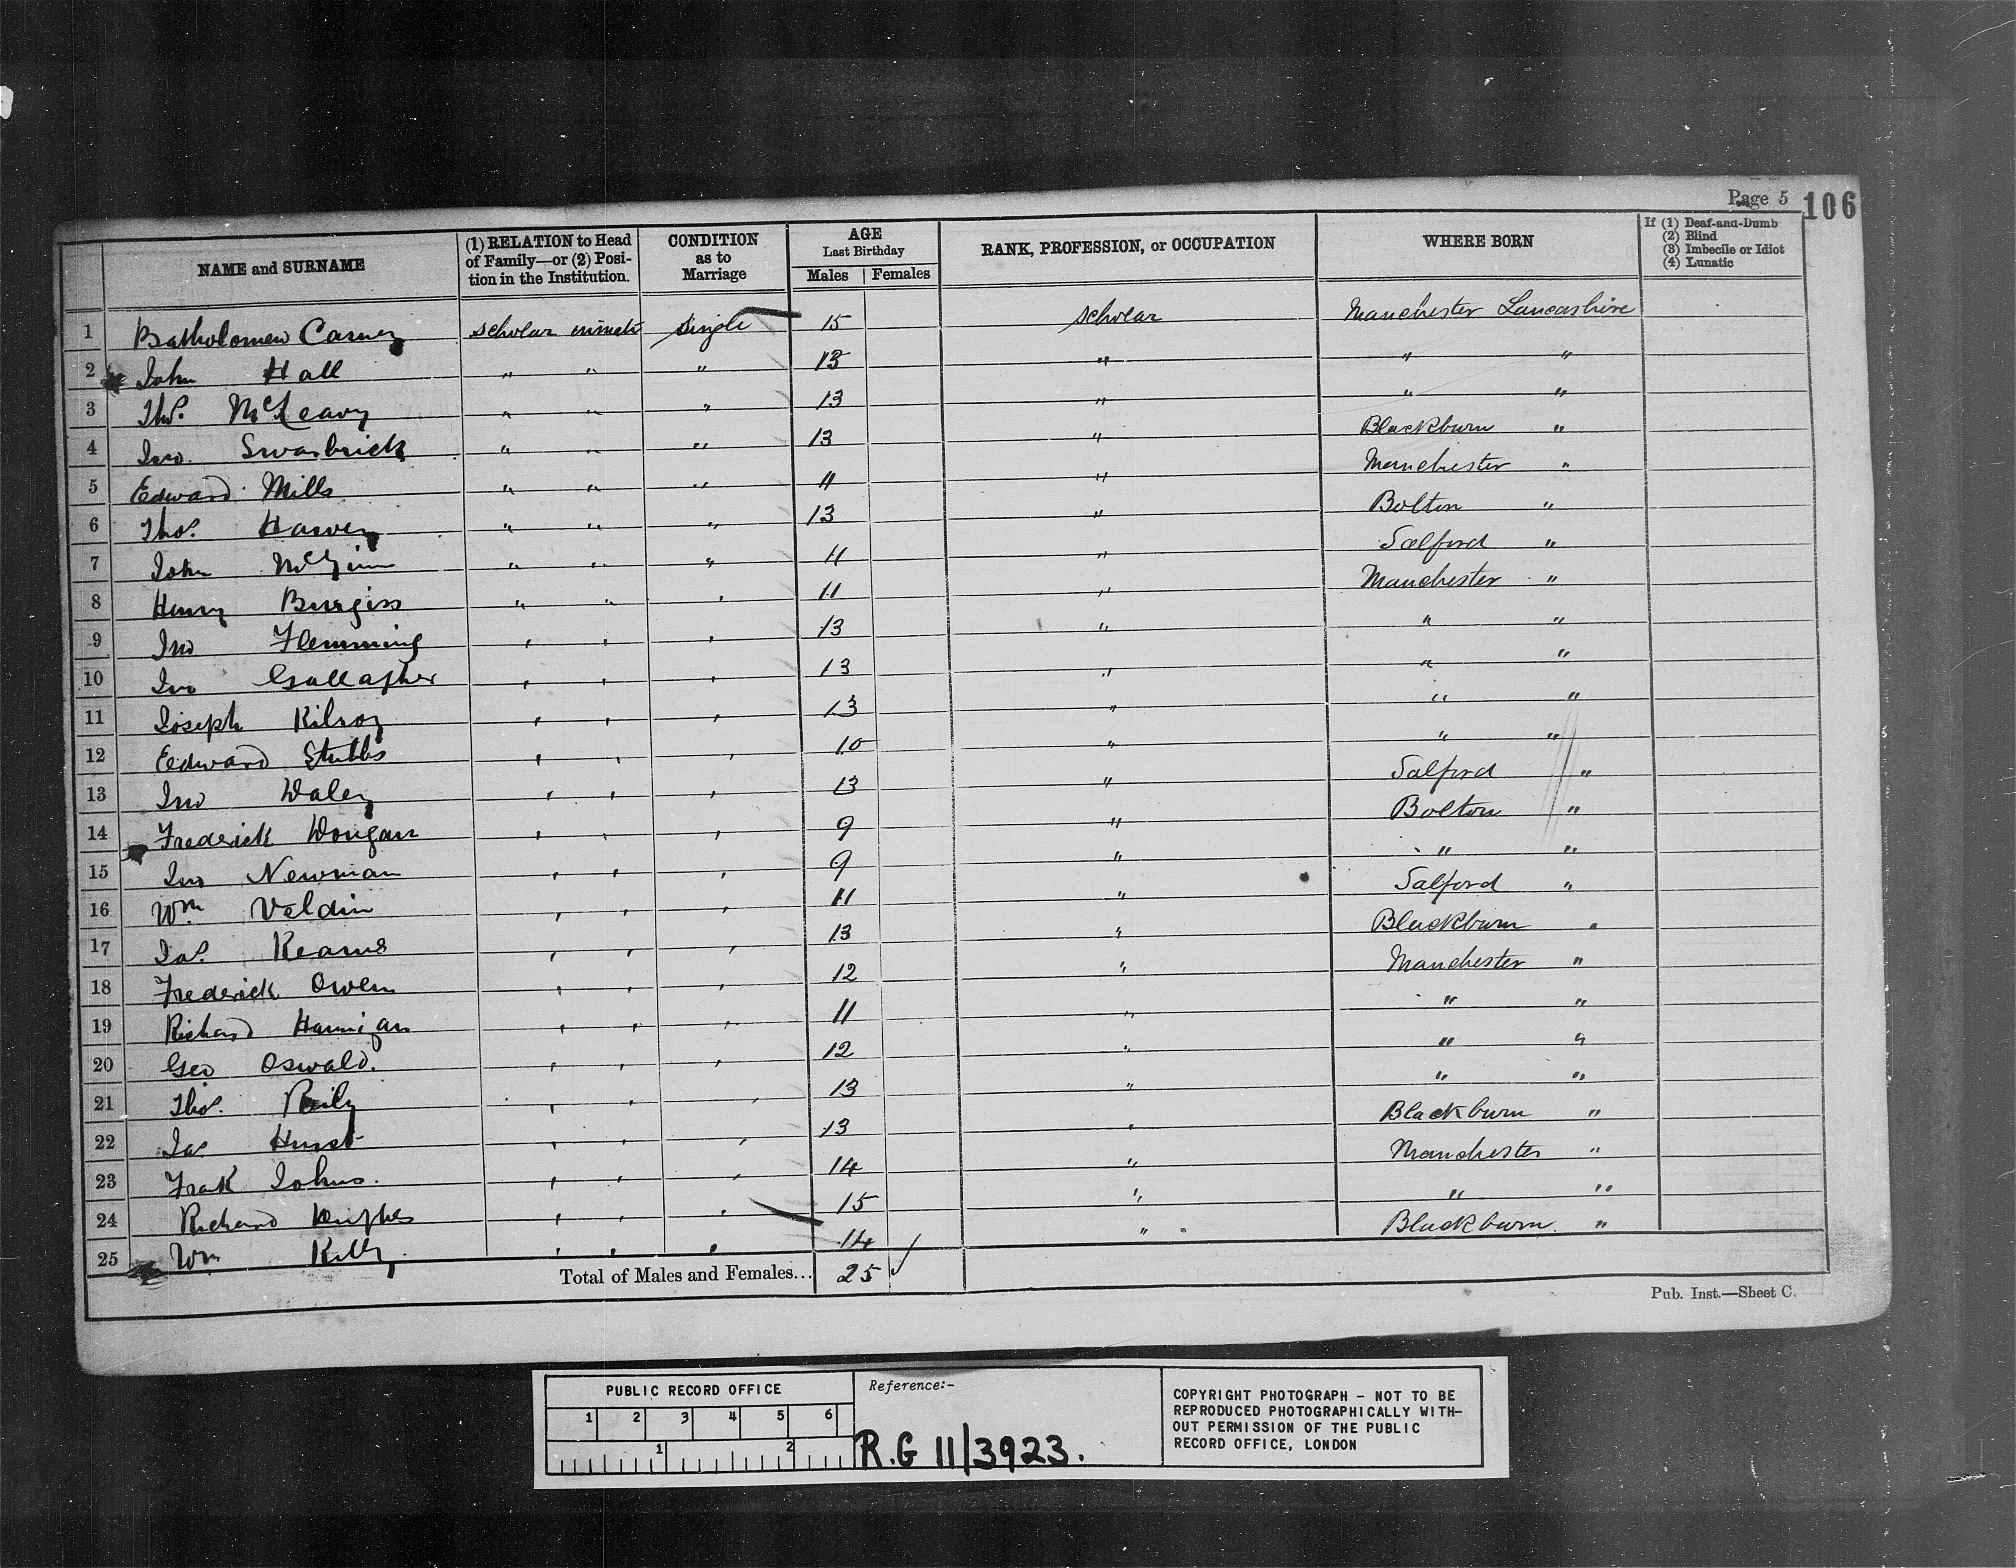 Page 5 106
NAME and SURNAME (1) RELATION to Head of Family—or (2) Position in the Institution. CONDITION as to Marriage AGE Last Birthday Males Females RANK, PROFESSION, or OCCUPATION WHERE BORN If (1) Deaf-and-Dumb (2) Blind (3) Imbecile or Idiot (4) Lunatic
1 Bartholomew scholar inmate Single 15 scholar Manchester Lancashire
2 John Hall " " " 13 " " "
3 Thos. McLeavy " " " 13 " " "
4 Jno. Swarbrick " " " 13 " Blackburn "
5 Edward Mills " " " 11 " Manchester "
6 Thos. Harvey " " " 13 " Bolton "
7 John McGinn " " " 11 " Salford "
8 Henry Burgiss " " " 11 " Manchester "
9 Jno Flemming " " " 13 " " "
10 Jno Gallagher " " " 13 " " "
11 Joseph Kilroy " " " 13 " " "
12 Edward Stubbs " " " 10 " " "
13 Jno Daley " " " 13 " Salford "
14 Frederick Dougan " " " 9 " Bolton "
15 Jno Newman " " " 9 " " "
16 Wm. Valdin " " " 11 " Salford "
17 Jas. Kearns " " " 13 " Blackburn "
18 Frederick Owen " " " 12 " Manchester "
19 Richard Hannigan " " " 11 " " "
20 Geo Oswald. " " " 12 " " "
21 Thos. Reily " " " 13 " " "
22 Jas Hurst " " " 13 " Blackburn "
23 Frak Johns. " " " 14 " Manchester "
24 Richard Hughes " " " 15 " " "
25 Wm Kelly " " " 14 " " Blackburn "
Total of Males and Females... 25
Pub. Inst.—Sheet C.
PUBLIC RECORD OFFICE
1 2 3 4 5 6
1 2
Reference:-
R.G 11/3923.
COPYRIGHT PHOTOGRAPH – NOT TO BE
REPRODUCED PHOTOGRAPHICALLY WITH-
OUT PERMISSION OF THE PUBLIC
RECORD OFFICE, LONDON